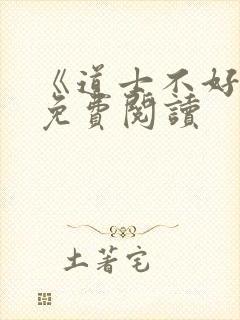 《道士不好
免費閱讀
土著宅